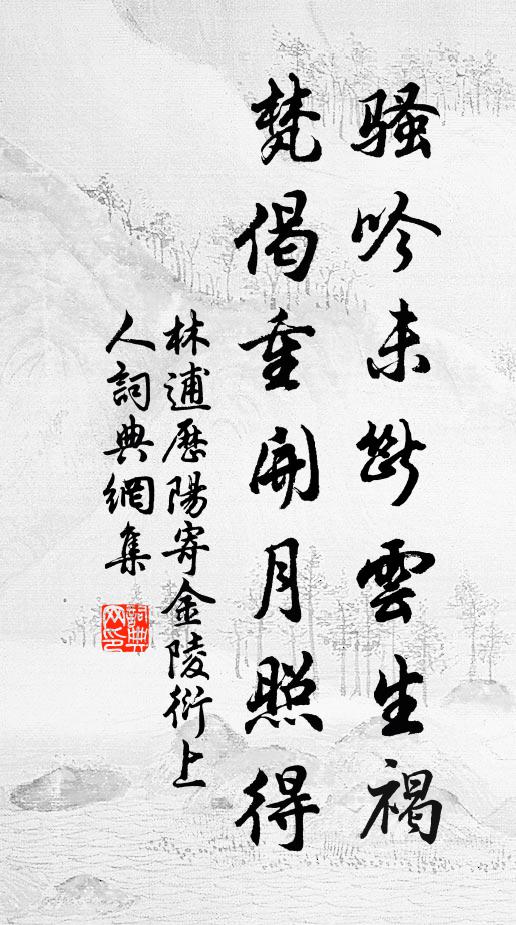 騷吟未斷雲生褐
梵偈重開月照得
林逋歷陽寄金陵衍上
人詞典網集
詞典
网印